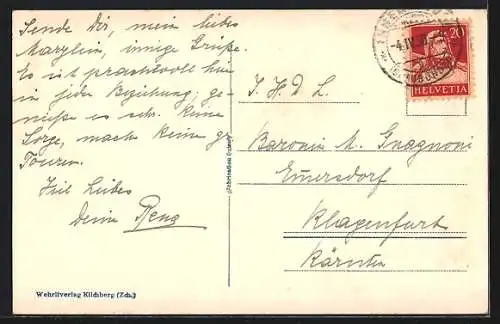 Sende Dir, mein liebes
Marylein, innige Grüße.
Es ist prachtvoll hier
in jeder Beziehung; ge-
nieße es sehr. Keine
Sorge, mache keine gr.
Touren.
Viel Liebes
deine Rena
Wehrliverlag Kilchberg (Zch.)
20
HELVETIA
I. H. d. L.
Baronin M. Gnagnoni
Emersdorf
Klagenfurt
Kärnten